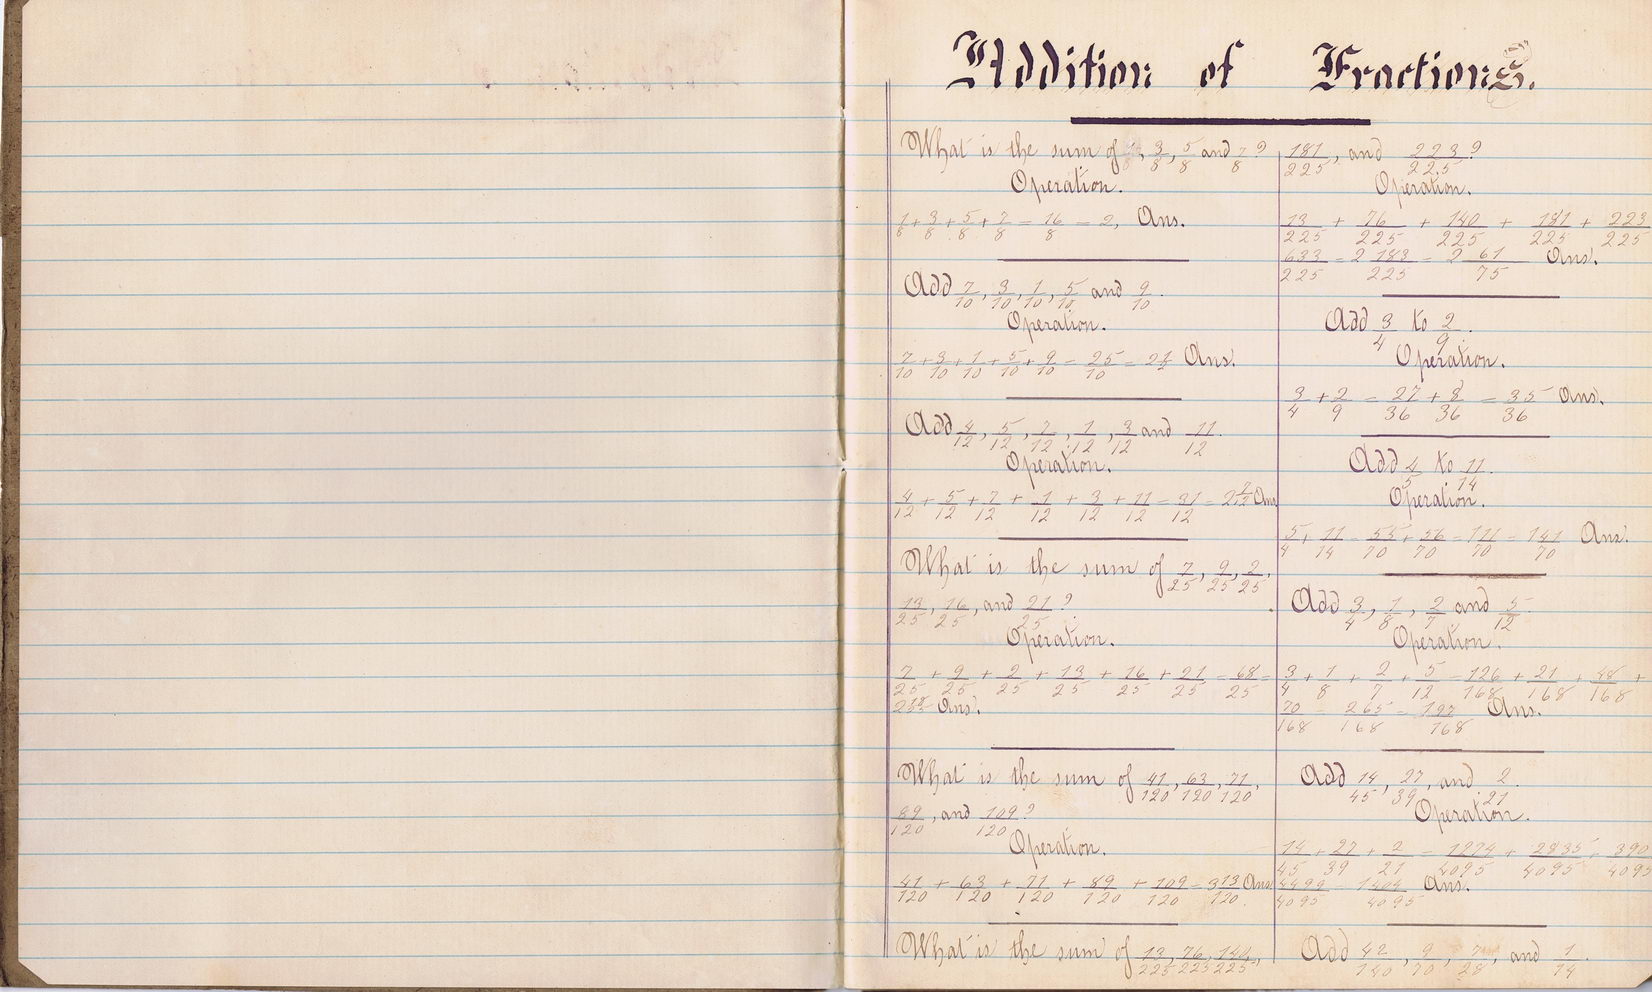 Addition of Fractions.
What is the sum of 1/8, 3/8, 5/8 and 7/8?
Operation.
1/8 + 3/8 + 5/8 + 7/8 = 16/8 = 2, Ans.
Add 7/10, 3/10, 1/10, 5/10 and 9/10.
Operation.
7/10 + 3/10 + 1/10 + 5/10 + 9/10 = 25/10 = 2 1/2 Ans.
Add 4/12, 5/12, 7/12, 1/12, 3/12 and 11/12.
Operation.
4/12 + 5/12 + 7/12 + 1/12 + 3/12 + 11/12 = 31/12 = 2 7/12 Ans
What is the sum of 7/25, 9/25, 2/25,
13/25, 16/25, and 21/25?
Operation.
7/25 + 9/25 + 2/25 + 13/25 + 16/25 + 21/25 = 68/25 =
2 18/25 Ans.
What is the sum of 41/120, 63/120, 71/120,
89/120, and 109/120?
Operation.
41/120 + 63/120 + 71/120 + 89/120 + 109/120 = 3 13/120 Ans
What is the sum of 13/225, 76/225, 140/225,
181/225, and 223/225?
Operation.
13/225 + 76/225 + 140/225 + 181/225 + 223/225
633/225 = 2 183/225 = 2 61/75 Ans.
Add 3/4 to 2/9.
Operation.
3/4 + 2/9 = 27/36 + 8/36 = 35/36 Ans.
Add 4/5 to 11/14.
Operation.
5/4 + 11/14 = 55/70 + 56/70 = 111/70 = 1 41/70 Ans.
Add 3/4, 1/8, 2/7 and 5/12.
Operation.
3/4 + 1/8 + 2/7 + 5/12 = 126/168 + 21/168 + 48/168 +
70/168 = 265/168 = 1 97/168 Ans.
Add 14/45, 27/39, and 2/21.
Operation.
14/45 + 27/39 + 2/21 = 1274/4095 + 2835/4095 + 390/4095
4499/4095 = 1 404/4095 Ans.
Add 42/140, 9/70, 7/28, and 1/14.